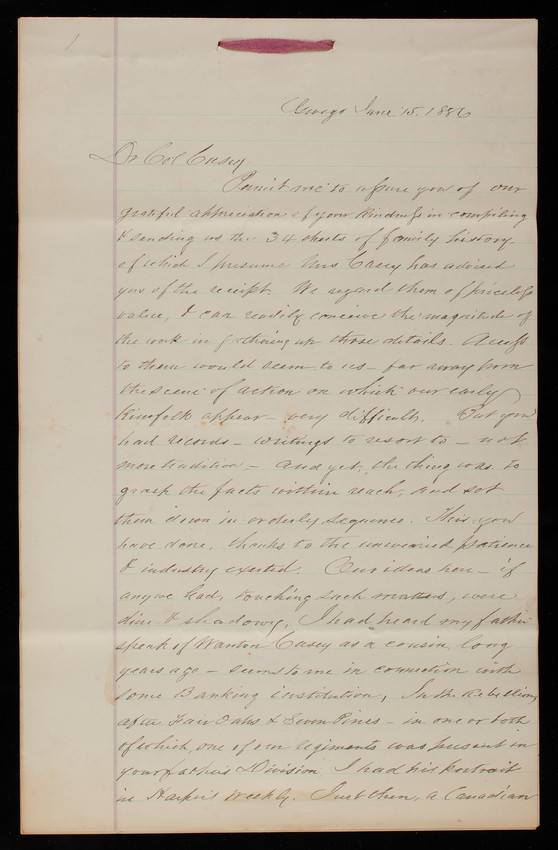 1
Oswego June 15. 1886
Dr Col Casey
Permit me to assure you of our
grateful appreciation of your kindness in compiling
& sending us the 34 sheets of family history
of which I presume Mrs Casey has advised
you of the receipt. We regard them of priceless
value, & can readily conceive the magnitude of
the work in gathering up those details. Access
to them would seem to us - far away from
the scene of action on which our early
kinsfolk appear - very difficult. But you
had records - writings to resort to - not
mere tradition - and yet, the thing was to
grasp the facts within reach, and set
them down in orderly sequence. This you
have done, thanks to the unwearied patience
& industry exerted. Our ideas here - if
any we had, touching such matters, were
dim & shadowy. I had heard my father
speak of Wanton Casey as a cousin, long
years ago - seems to me in connection with
some Banking institution, In the Rebellion,
after Fair Oaks & Seven Pines - in one or both
of which, one of our regiments was present in
your father's Division, I had his portrait
in Harper's Weekly. Just then, a Canadian